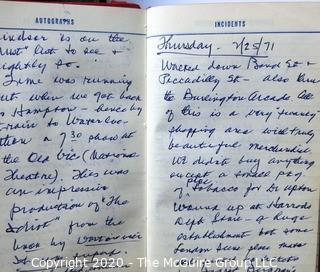 AUTOGRAPHS
indsor is on the
must" list to see &
ightly so.
Time was running
out when we got back
to Hampton – hence by
train to Waterloo
then a 7:30 show at
the Old Vic (National
Theatre). This was
an impressive
production of "The
Idiot" from the
book by
INCIDENTS
Thursday. 2/25/71
Walked down Bond St &
Piccadilly St – also thru
the Burlington Arcade. All
of this is a very
shopping area with truly
beautiful merchandise.
We didn't buy anything
except a small pkg.
pipe
of tobacco for Dr Upton
Wound up at Harrods
Dept Store – a huge
establishment but some
Copyright © 2020 - The McGuire Group LLC